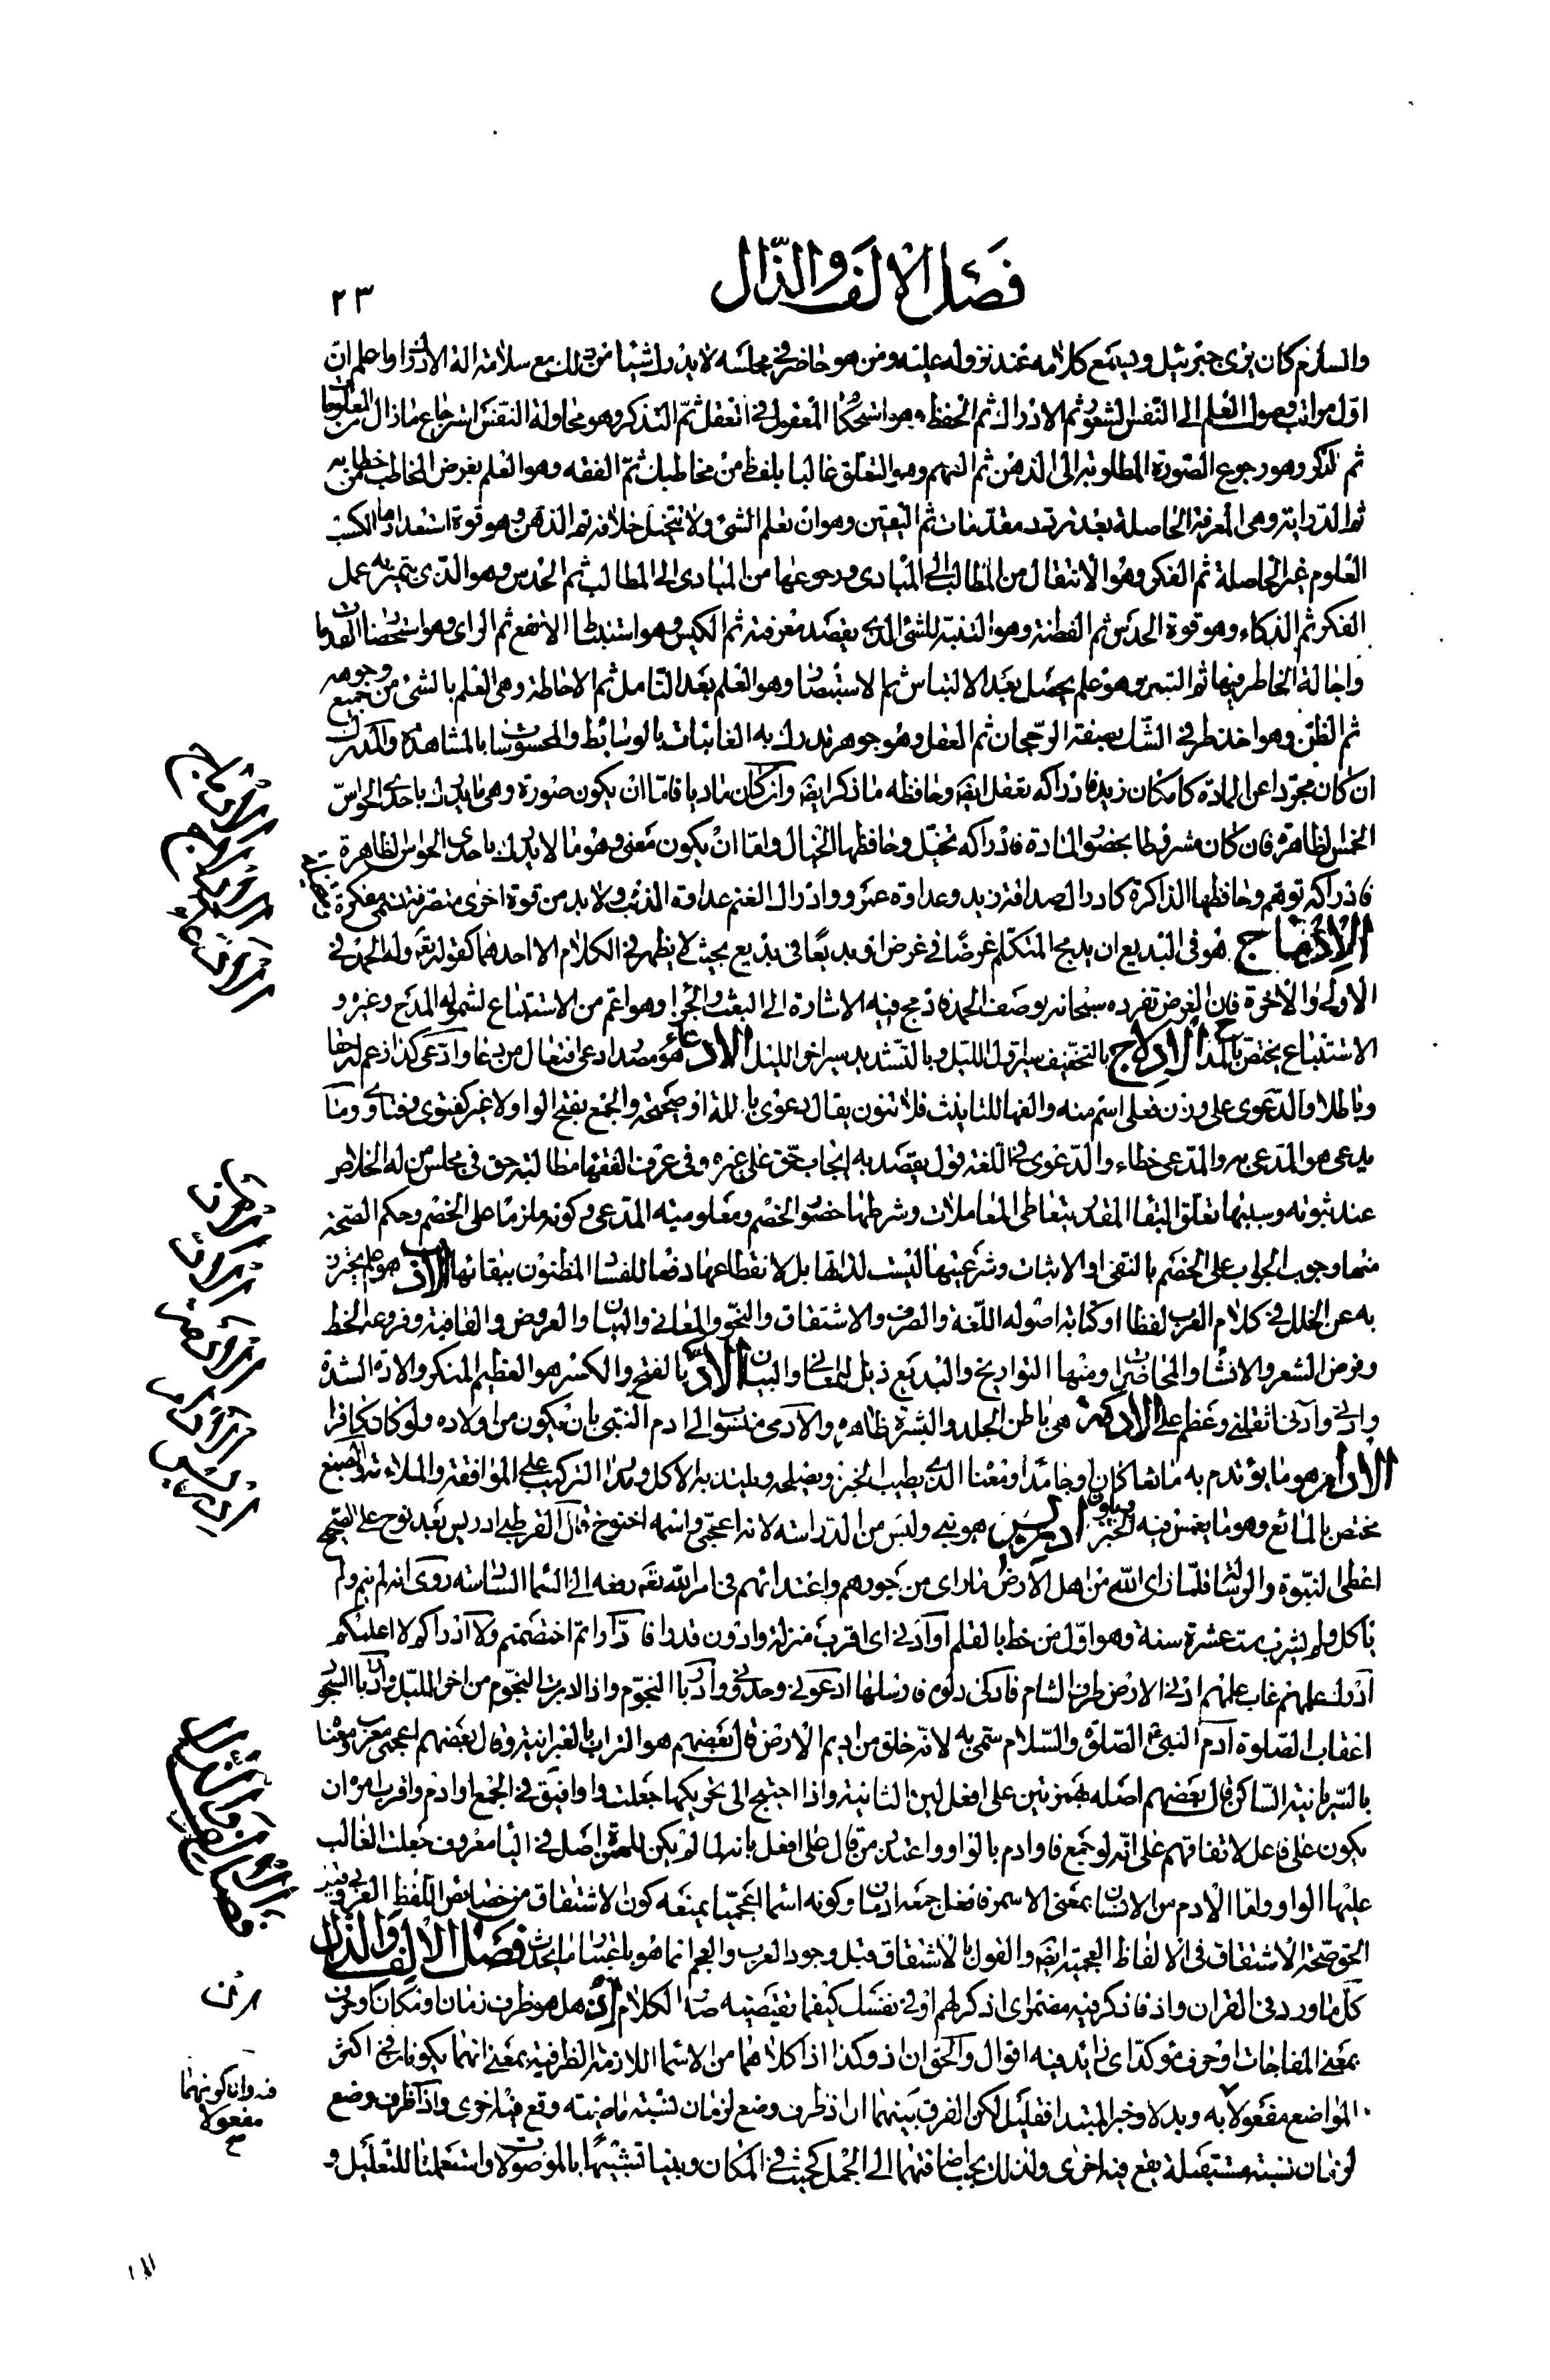 فصل الالف والذال
٢٣
والسلام كان يرى جبرئيل ويسمع كلامه عند نزوله عليه ومن هو حاضر في مجلسه لا يدرك شيئا من ذلك مع سلامة الة الادراك واعلم ان
اول مراتب وصول العلم الى النفس الشعور ثم الادراك ثم الحفظ وهو استحكام المعقول في العقل ثم التذكر وهو محاولة النفس استرجاع ما زال من المعلومات
ثم الذكر وهو رجوع الصورة المطلوبة الى الذهن ثم الفهم وهو التعلق غالبا بلفظ من مخاطبك ثم الفقه وهو العلم بغرض المخاطب من خطابه
ثم الدراية وهي المعرفة الحاصلة بعد تردد مقدمات ثم اليقين وهو ان تعلم الشئ ولا تتخيل خلافه ثم الذهن وهو قوة استعدادها لكسب
العلوم غير الحاصلة ثم الفكر وهو الانتقال من المطالب الى المبادى ورجوعها من المبادى الى المطالب ثم الحدس وهو الذى يتميز به عمل
الفكر ثم الذكاء وهو قوة الحدس ثم الفطنة وهو التنبه للشئ الذى يقصد معرفته ثم الكيس وهو استنباط الانفع ثم الراى وهو استحضار المقدمات
واجالة الخاطر فيها ثم التبين وهو علم يحصل بعد الالتباس ثم الاستبصار وهو العلم بعد التامل ثم الاحاطة وهي العلم بالشئ من جميع وجوهه
ثم الظن وهو اخذ طرفي الشك بصفة الرجحان ثم العقل وهو جوهر تدرك به الغائبات بالوسائط والمحسوسات بالمشاهدة والمدرك
ان كان مجردا عن المادة كامكان زيد فادراكه تعقل ايضا وحافظه ما ذكر ايضا وان كان ماديا فاما ان يكون صورة وهى ما يدرك باحدى الحواس
الخمس الظاهرة فان كان مشروطا بحضور المادة فادراكه تخيل وحافظها الخيال واما ان يكون معنى وهو ما لا يدرك باحدى الحواس الظاهرة
فادراكه توهم وحافظها الذاكرة كادراك صداقة زيد وعداوة عمرو وادراك الغنم عداوة الذئب ولا بد من قوة اخرى متصرفة تسمى مفكرة
الادماج هو في البديع ان يدمج المتكلم غرضا في غرض او بديعا في بديع بحيث لا يظهر في الكلام الا احدهما كقوله تعالى وله الحمد في
الاولى والاخرة فان الغرض تفرده سبحانه بوصف الحمد فادمج فيه الاشارة الى البعث والجزاء وهو اعم من الاستتباع لشموله المدح وغيره و
الاستتباع يختص بالمدح الادلاج بالتخفيف سير اول الليل وبالتشديد سير اخر الليل الادعاء هو مصدر ادعى افتعال من دعا وادعى كذا زعم له حقا
وباطلا والدعوى على وزن فعلى اسم منه والفها للتانيث فلا تنون يقال دعوى باطلة او صحيحة والجمع بفتح الواو لا غير كفتوى وفتاوى وما
يدعى هو المدعى به والمدعى خطاء والدعوى في اللغة قول يقصد به ايجاب حق على غيره وفي عرف الفقهاء مطالبة حق في مجلس من له الخلاص
عند ثبوته وسببها تعلق البقاء المقدر بتعاطى المعاملات وشرطها حضور الخصم ومعلومية المدعى وكونه ملزما على الخصم وحكم الصحة
منها وجوب الجواب على الخصم بالنفي او الاثبات وشرعيتها ليست لذاتها بل لانقطاعها دفعا للفساد المظنون ببقائها الادب هو علم يحترز
به عن الخلل في كلام العرب لفظا او كتابة اصوله اللغة والصرف والاشتقاق والنحو والمعاني والبيان والعروض والقافية وفروعه الخط
وقرض الشعر والانشاء والمحاضرات ومنها التواريخ والبديع ذيل للمعاني والبيان الاد بالفتح والكسر هو العظيم المنكر والادة الشدة
وادني وآدني اثقلني وعظم على الادمة هي باطن الجلد والبشرة ظاهره والآدمى منسوب الى ادم النبي بان يكون من اولاده ولو كان كافرا
الادام هو ما يؤتدم به مائعا كان او جامدا ومعناه الذى يطيب الخبز ويصلحه ويلتذ به الاكل ومدار التركيب على الموافقة والملاءمة والصبغ
مختص بالمائع وهو ما يغمس فيه الخبز ويلون ادريس هو نبي وليس من الدراسة لانه اعجمى واسمه اخنوخ قال القرطبى ادريس بعد نوح على الصحيح
اعطى النبوة والرسالة فلما راى الله من اهل الارض ما راى من جورهم واعتدائهم في امر الله تعالى رفعه الى السماء السادسة روى انه لم ينم ولم
ياكل ولم يشرب ست عشرة سنة وهو اول من خط بالقلم او ادنى اى اقرب منزلة وادون قدرا فادارأتم اختصمتم ولا ادراكم لا اعلمكم
ادارك علمهم غاب علمهم ادنى الارض طرف الشام فادلى دلوه فارسلها ادعوني وحدوني وادبار النجوم واذا ادبرت النجوم من اخر الليل وادبار السجود
اعقاب الصلوة آدم النبي عليه الصلوة والسلام سمى به لانه خلق من اديم الارض قال بعضهم هو التراب بالعبرانية وقال بعضهم اعجمى معرب ومعناه
بالسريانية الساكن قال بعضهم اصله بهمزتين على افعل لين الثانية واذا احتيج الى تحريكها جعلت واوا فيق في الجمع اوادم واقرب امره ان
يكون على فاعل لاتفاقهم على انه لو جمع فاوادم بالواو واعتذر من قال على افعل بانه لما لم يكن للهمزة اصل في الياء معروف جعلت الغالب
عليها الواو واما الادم من الانسان بمعنى الاسمر فافعل جمعه ادمان وكونه اسما اعجميا يمنعه كون الاشتقاق من خصائص اللفظ العربي فيه
الحق صحة الاشتقاق في الالفاظ العجمية ايضا والقول بالاشتقاق قبل وجود العرب والعجم انما هو باعتبار ما يحدث فصل الالف والذال
كل ما ورد في القران واذ فاذكر فيه مضمر اى اذكر لهم او في نفسك كيفما تقتضيه صدر الكلام اذ هل هو ظرف زمان او مكان او حرف
بمعنى المفاجات او حرف مؤكد اى زائد فيه اقوال والحق ان اذ وكذا اذا كلاهما من الاسماء اللازمة الظرفية بمعنى انهما يكونان في اكثر
المواضع مفعولا به وبدلا وخبر المبتدا فقليل لكن الفرق بينهما ان اذ ظرف وضع لزمان نسبته ماضية وقع فيه اخرى واذا ظرف وضع
لزمان نسبته مستقبلة يقع فيه اخرى ولذلك يجب اضافتهما الى الجمل كحيث في المكان وبنيا تشبيها بالموصولات واستعملتا للتعليل و
الادماج
الادلاج
الادعاء
الادب
الاد
الادمة
الادام
ادريس
فصل الالف والذال
اذ
فيه واما كونهما
مفعولا